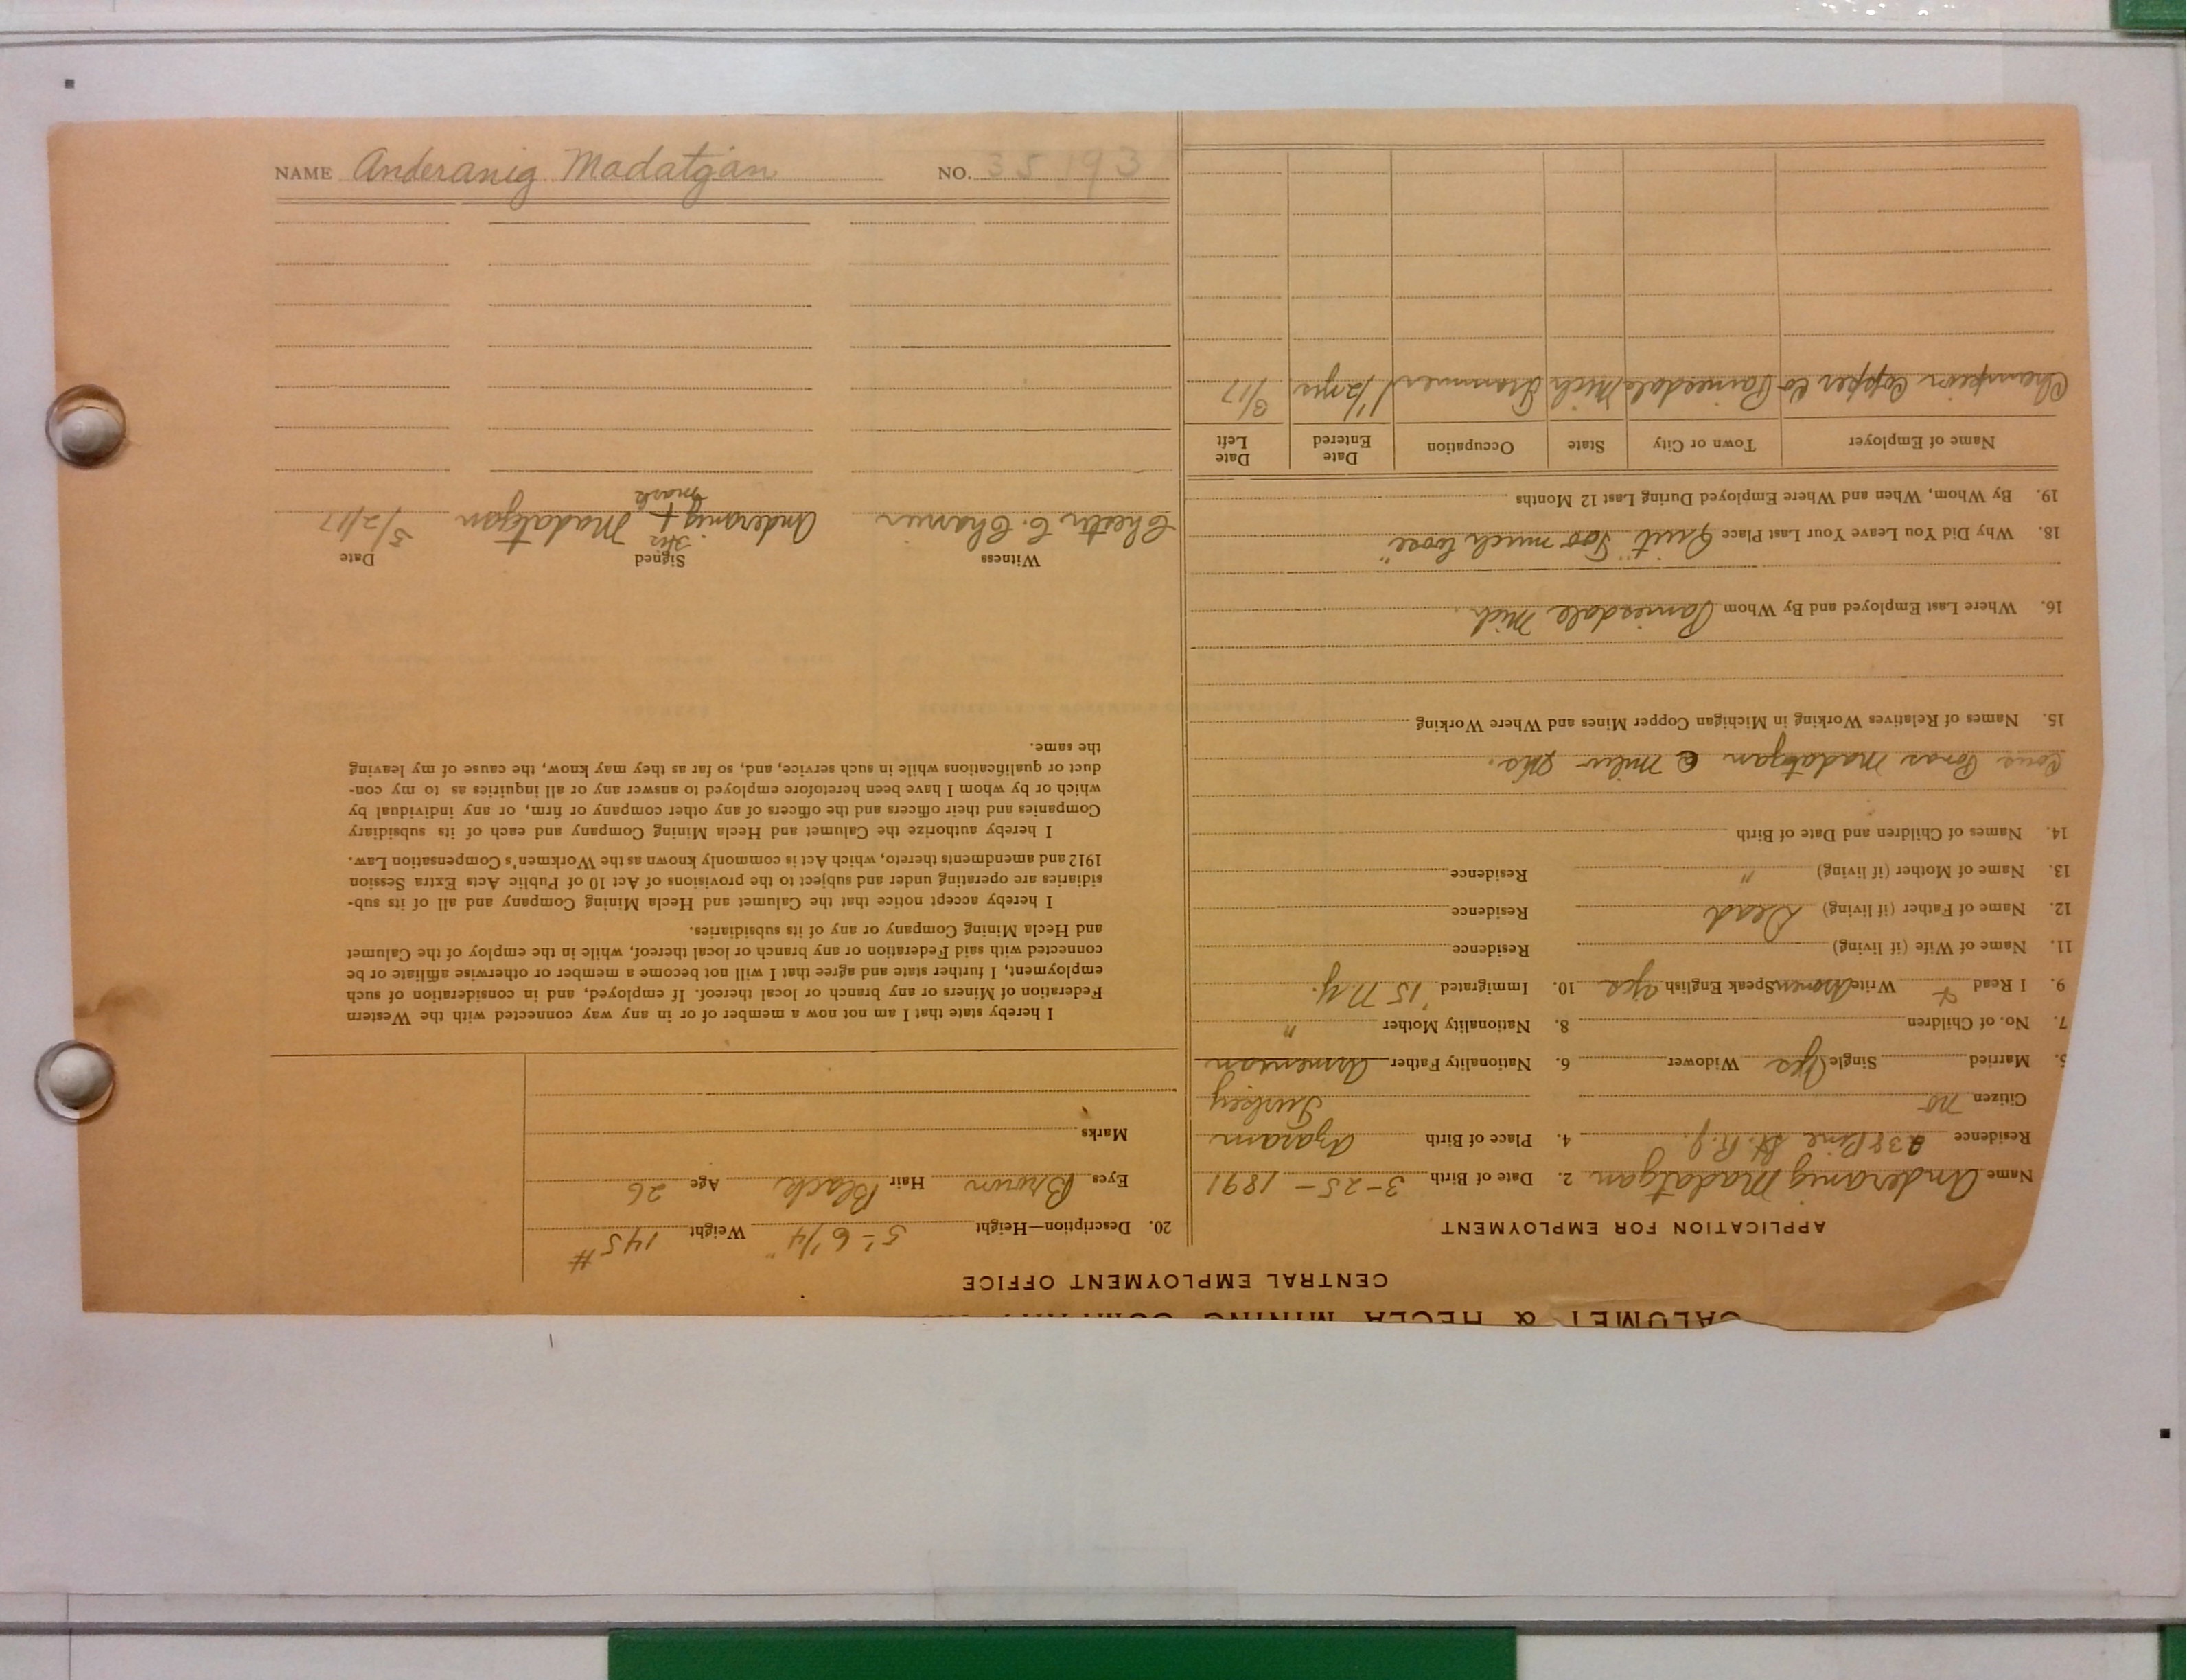 NAME Anderanig Madatgan NO. 35193
CALUMET & HECLA MINING COMPANY
CENTRAL EMPLOYMENT OFFICE
APPLICATION FOR EMPLOYMENT
Name Anderanig Madatgan 2. Date of Birth 3-25-1891
Residence 238 Pine St. R.J. 4. Place of Birth
Citizen no Turkey
5. Married Single Yes Widower 6. Nationality Father Armenian
7. No. of Children 8. Nationality Mother "
9. I Read & Write Armen Speak English yes 10. Immigrated '15 N.Y.
11. Name of Wife (if living) Residence
12. Name of Father (if living) Dead Residence
13. Name of Mother (if living) " Residence
14. Names of Children and Date of Birth
Cous Madatgan
15. Names of Relatives Working in Michigan Copper Mines and Where Working
16. Where Last Employed and By Whom Painesdale Mich.
18. Why Did You Leave Your Last Place Quit "Too much loose"
19. By Whom, When and Where Employed During Last 12 Months
Name of Employer Town or City State Occupation Date Entered Date Left
Champion Copper Co Painesdale Mich Trammer 1 1/2 yrs 3/17
20. Description—Height 5'-6 1/4" Weight 145#
Eyes Brown Hair Black Age 26
Marks
I hereby state that I am not now a member of or in any way connected with the Western
Federation of Miners or any branch or local thereof. If employed, and in consideration of such
employment, I further state and agree that I will not become a member or otherwise affiliate or be
connected with said Federation or any branch or local thereof, while in the employ of the Calumet
and Hecla Mining Company or any of its subsidiaries.
I hereby accept notice that the Calumet and Hecla Mining Company and all of its sub-
sidiaries are operating under and subject to the provisions of Act 10 of Public Acts Extra Session
1912 and amendments thereto, which Act is commonly known as the Workmen's Compensation Law.
I hereby authorize the Calumet and Hecla Mining Company and each of its subsidiary
Companies and their officers and the officers of any other company or firm, or any individual by
which or by whom I have been heretofore employed to answer any or all inquiries as to my con-
duct or qualifications while in such service, and, so far as they may know, the cause of my leaving
the same.
Witness Signed Date
his
Chester C. Anderanig + Madatgan 3/2/17
mark